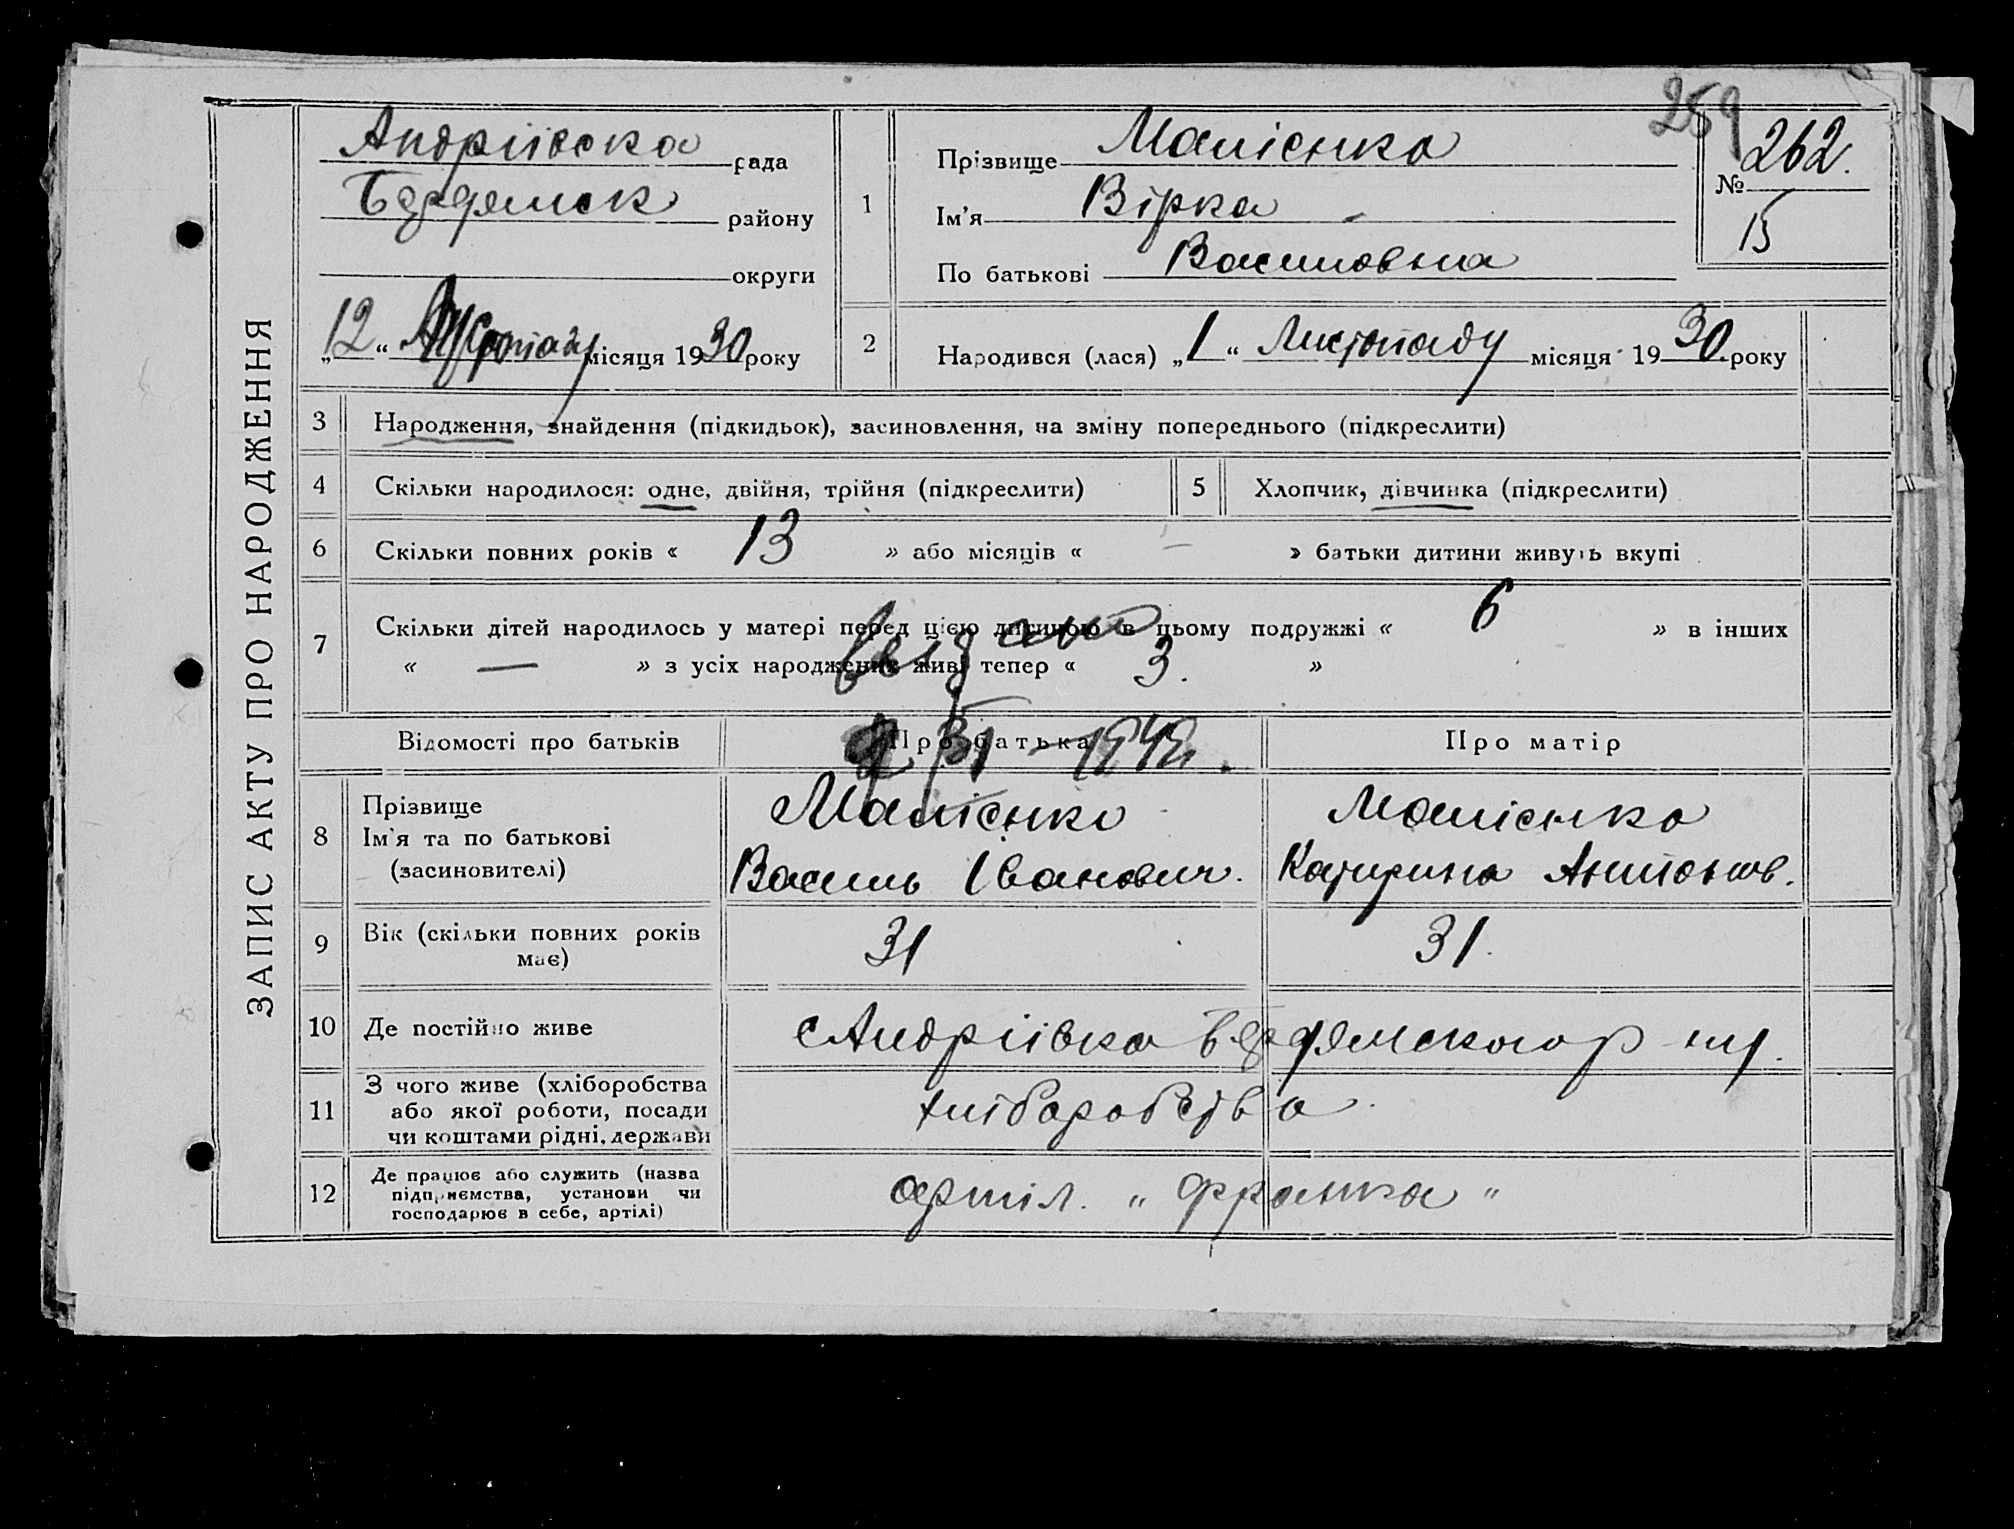 ЗАПИС АКТУ ПРО НАРОДЖЕННЯ
Андріївска рада
Бердянск району
округи
„12“ Листопаду місяця 1930 року
1
Прізвище Малієнко
Ім'я Вірка
По батькові Василовна
259
№ 262.
15
2
Народився (лася) „1“ Листопаду місяця 1930 року
3 Народження, знайдення (підкидьок), засиновлення, на зміну попереднього (підкреслити)
4 Скільки народилося: одне, двійня, трійня (підкреслити)
5 Хлопчик, дівчинка (підкреслити)
6 Скільки повних років « 13 » або місяців « — » батьки дитини живуть вкупі
7 Скільки дітей народилось у матері перед цією дитиною в цьому подружжі « 6 » в інших
« — » з усіх народжених живі тепер « 3. »
Відомості про батьків
Про батька
Про матір
8 Прізвище
Ім'я та по батькові
(засиновителі)
Малієнко
Василь Іванович.
Малієнко
Катирина Антонов.
9 Вік (скільки повних років
має)
31
31.
10 Де постійно живе
с Андріївка Бердянского р
11 З чого живе (хліборобства
або якої роботи, посади
чи коштами рідні, держави
хліборобства
12 Де працює або служить (назва
підприємства, установи чи
господарює в себе, артілі)
артіл. „Франка“